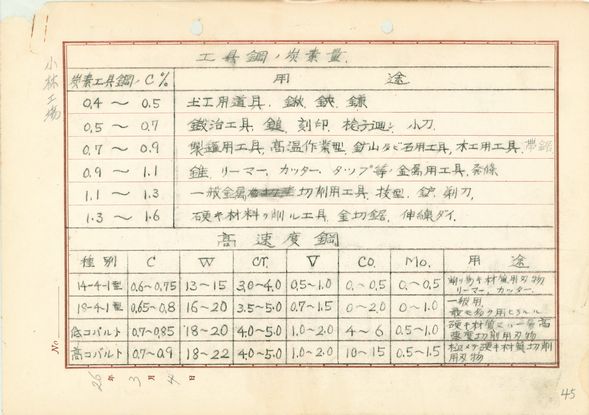 工具鋼ノ炭素量.
炭素工具鋼ノC% 用 途
0.4 〜 0.5 土工用道具. 鍬 鋏 鎌
0.5 〜 0.7 鍛冶工具. 鎚 刻印. 捻子廻シ 小刀.
0.7 〜 0.9 製鑵用工具. 高温作業型. 鉱山及ビ石用工具. 木工用工具. 帯鋸
0.9 〜 1.1 錐. リーマー. カッター. タップ等 金属用工具.
1.1 〜 1.3 一般金属 切削用工具. 抜型. 鑢. 剃刀.
1.3 〜 1.6 硬キ材料ヲ削ル工具 金切鋸. 伸線ダイ.
高速度鋼
種別 C W Cr. V Co. Mo. 用 途
14-4-1型 0.6〜0.75 13〜15 3.0〜4.0 0.5〜1.0 0.〜0.5 0.〜0.5 削リ易キ材質用刃物
リーマー. カッター.
18-4-1型 0.65〜0.8 16〜20 3.5〜5.0 0.7〜1.5 0〜2.0 0〜1.0 一般用
最モ多ク用ヒラル
低コバルト 0.7〜0.85 18〜20 4.0〜5.0 1.0〜2.0 4〜6 0.5〜1.0 硬キ材質 一層高
速度切削用刃物
高コバルト 0.7〜0.9 18〜22 4.0〜5.0 1.0〜2.0 10〜15 0.5〜1.5 極メテ硬キ材質切削
用刃物
小林工場
No
26年 3月 4日
45